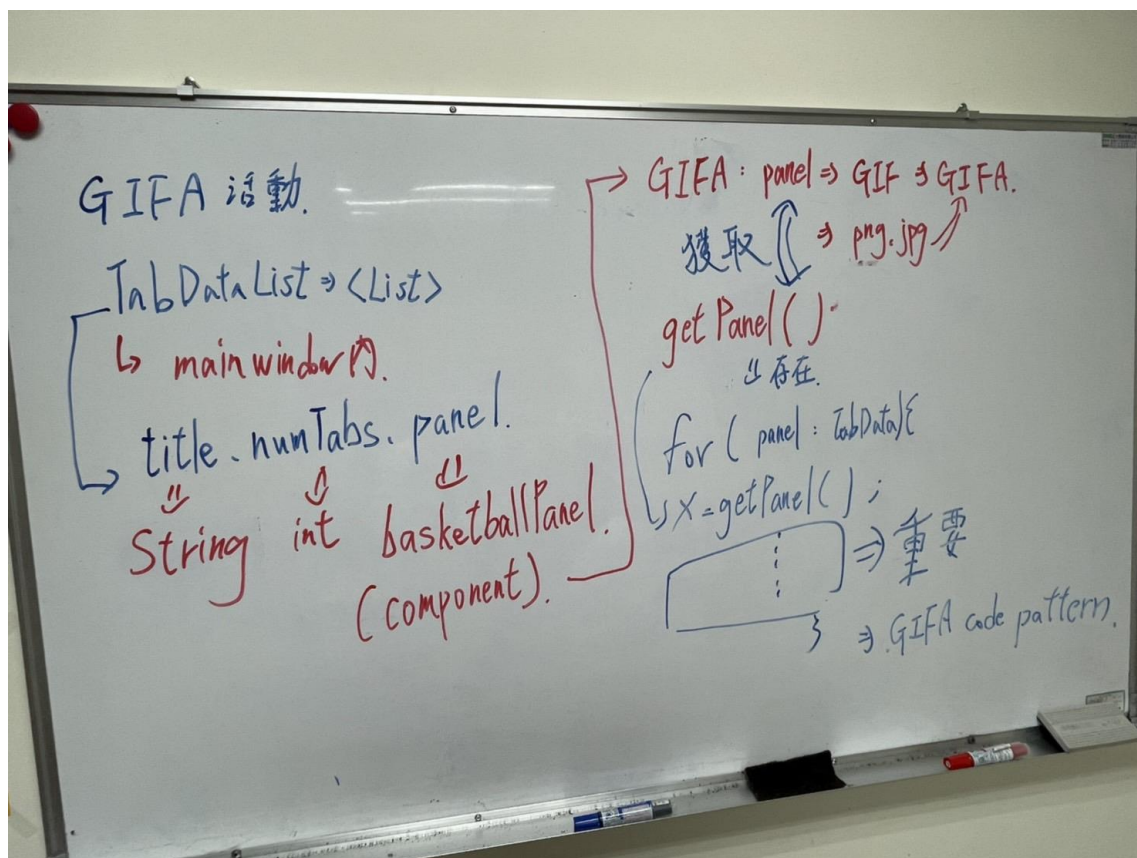 GIFA 活動.
TabDataList ⇒ <List>
↳ mainwindow內.
title、numTabs、panel.
String int basketballPanel.
(component).
GIFA : panel ⇒ GIF ⇒ GIFA.
獲取 ⇒ png.jpg
getPanel()
存在.
for ( panel : TabData){
X = getPanel() ;
⇒ 重要
} ⇒ GIFA code pattern.